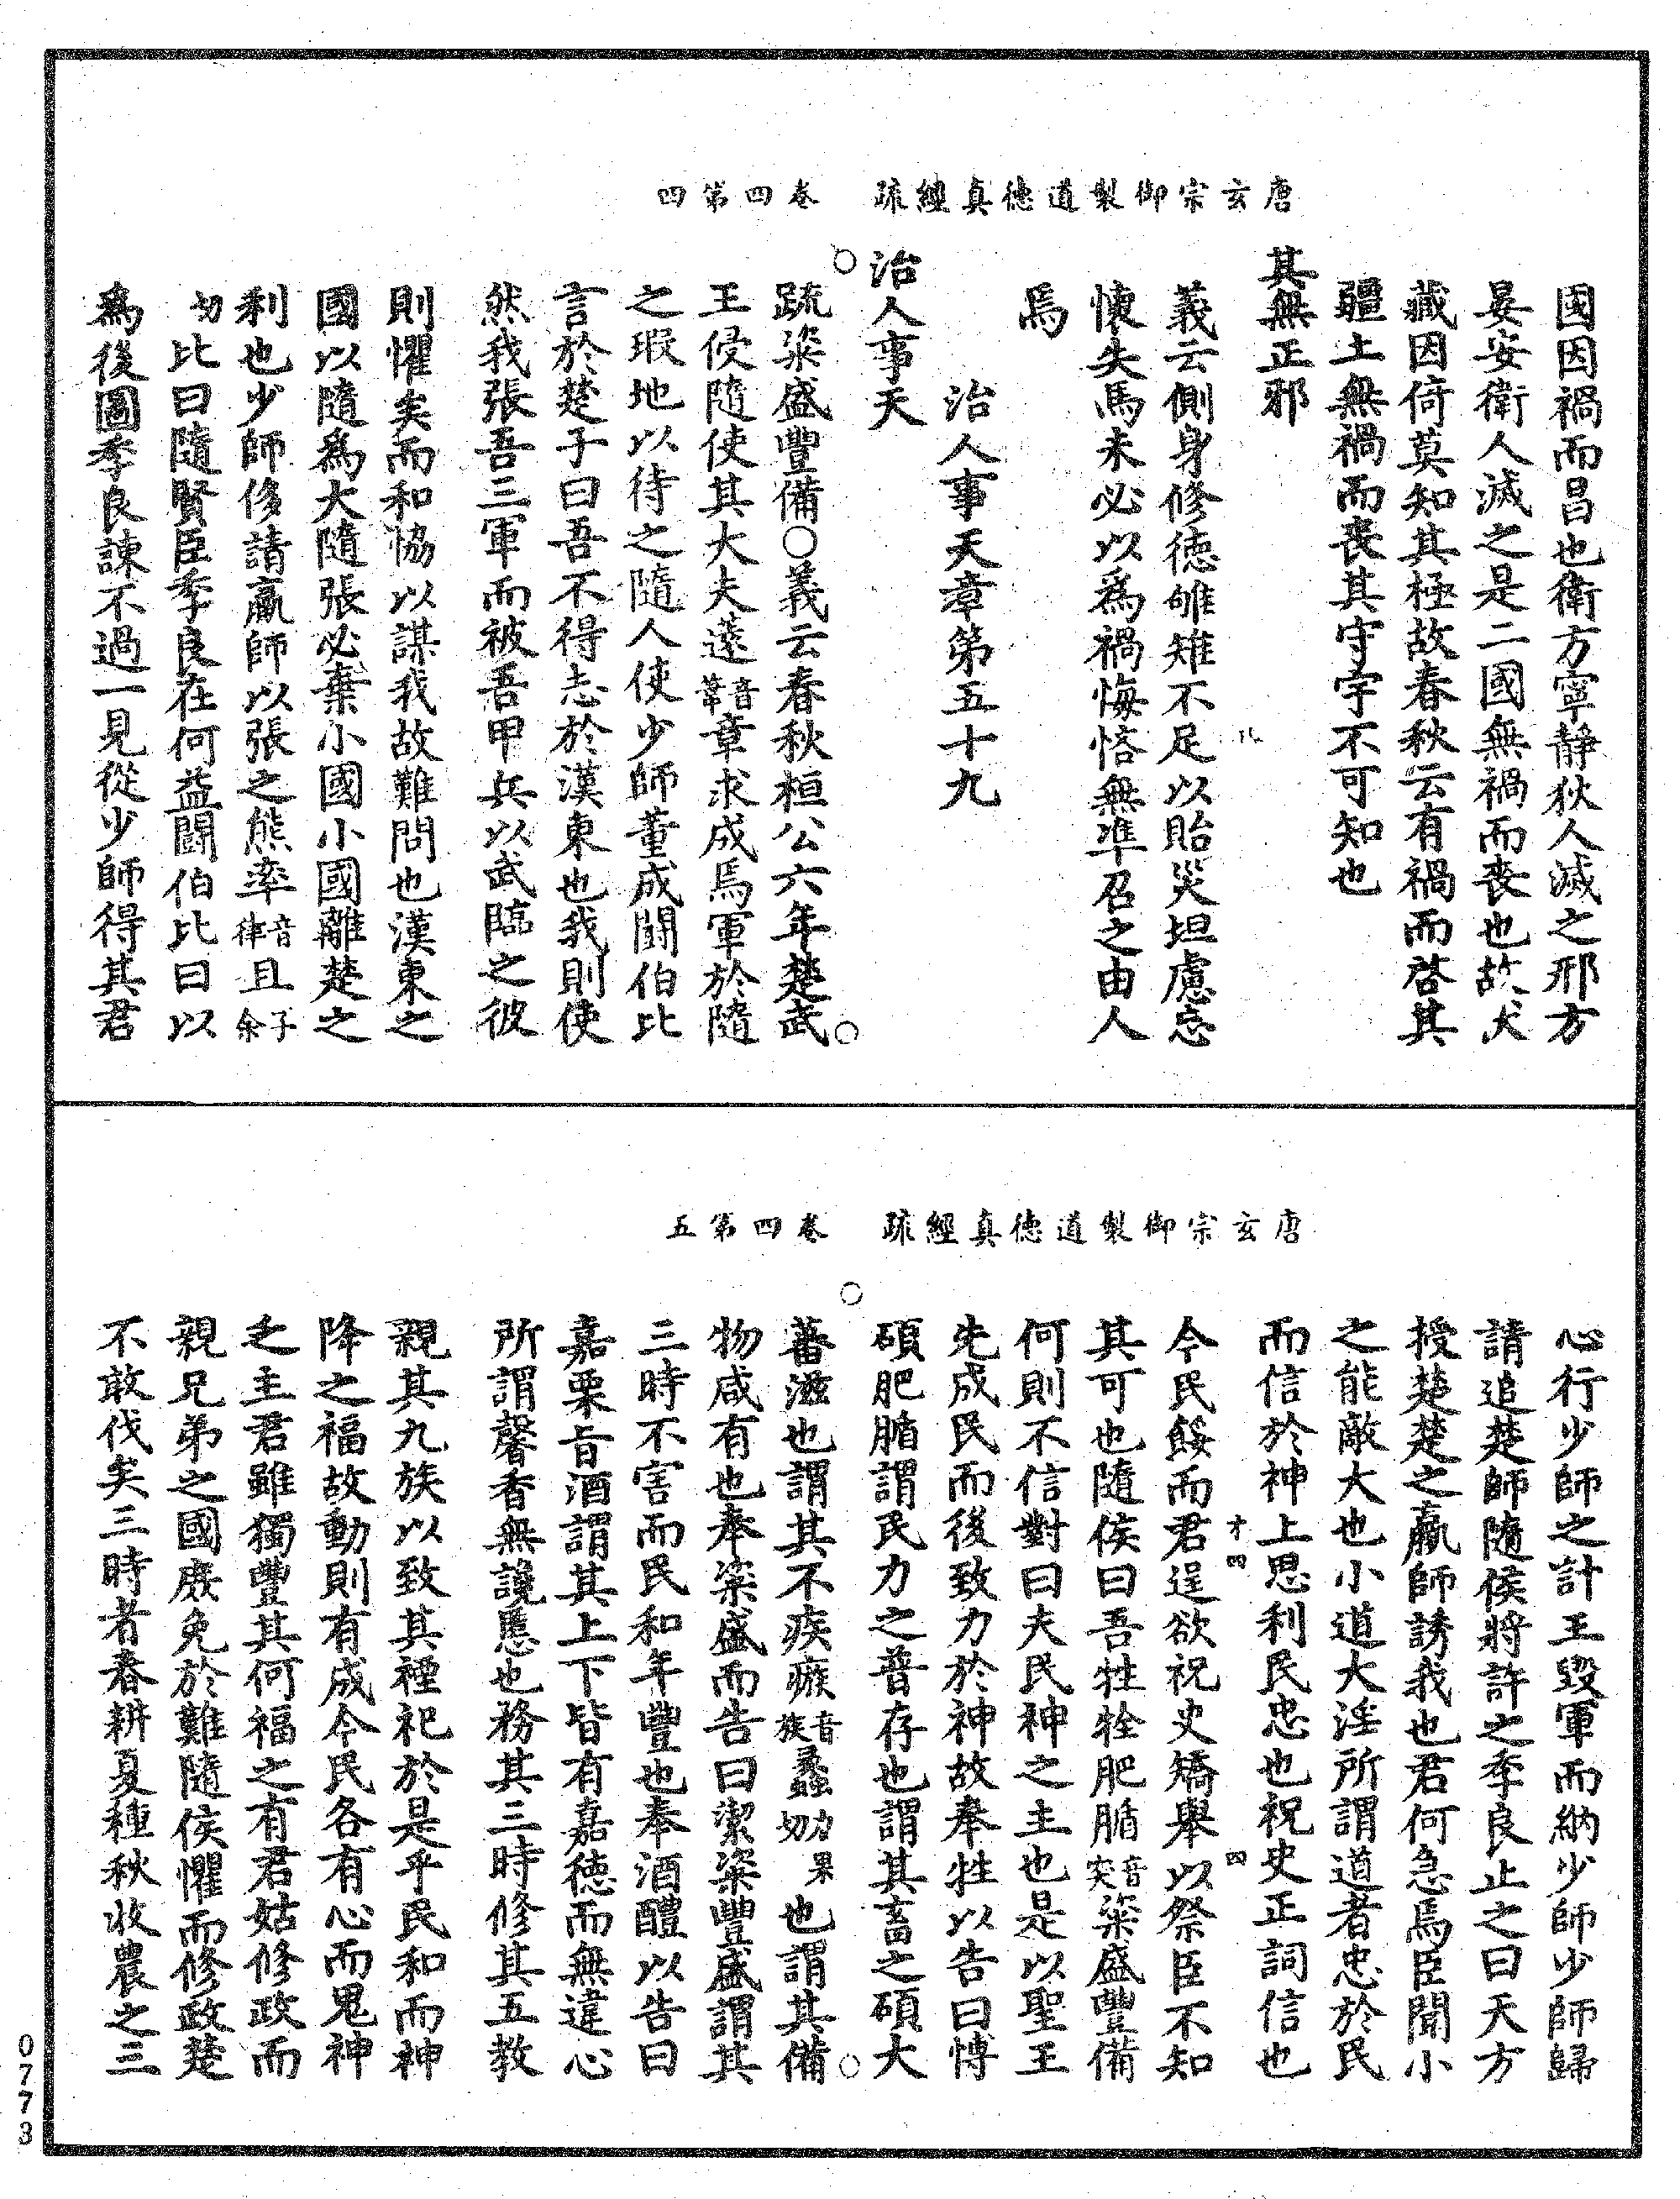 唐玄宗御製道德真經疏　卷四第四
國因禍而昌也衛方寧静狄人滅之邢方
晏安衛人滅之是二國無禍而喪也故犬
藏因倚莫知其極故春秋云有禍而啓其
疆土無禍而喪其守宇不可知也
其無正邪
義云側身修德雊雉不足以貽災坦慮忘
懷失馬未必以為禍悔悋無準召之由人
焉
治人事天章第五十九
治人事天
疏粢盛豐備○義云春秋桓公六年楚武
王侵隨使其大夫薳音葦章求成焉軍於隨
之瑕地以待之隨人使少師董成鬭伯比
言於楚子曰吾不得志於漢東也我則使
然我張吾三軍而被吾甲兵以武臨之彼
則懼矣而和協以謀我故難間也漢東之
國以隨為大隨張必棄小國小國離楚之
利也少師侈請羸師以張之熊率音律且子余
切比曰隨賢臣季良在何益鬭伯比曰以
為後圖季良諫不過一見從少師得其君
唐玄宗御製道德真經疏　卷四第五
心行少師之計王毀軍而納少師少師歸
請追楚師隨侯將許之季良止之曰天方
授楚楚之羸師誘我也君何急焉臣聞小
之能敵大也小道大淫所謂道者忠於民
而信於神上思利民忠也祝史正詞信也
今民餒而君逞欲祝史矯舉以祭臣不知
才四　四
其可也隨侯曰吾牲牷肥腯音突粢盛豐備
何則不信對曰夫民神之主也是以聖王
先成民而後致力於神故奉牲以告曰博
碩肥腯謂民力之普存也謂其畜之碩大
蕃滋也謂其不疾瘯音族蠡力果切也謂其備
物咸有也奉粢盛而告曰潔粢豐盛謂其
三時不害而民和年豐也奉酒醴以告曰
嘉栗旨酒謂其上下皆有嘉德而無違心
所謂馨香無讒慝也務其三時修其五教
親其九族以致其禋祀於是乎民和而神
降之福故動則有成今民各有心而鬼神
乏主君雖獨豐其何福之有君姑修政而
親兄弟之國庶免於難隨侯懼而修政楚
不敢伐矣三時者春耕夏種秋收農之三
0773